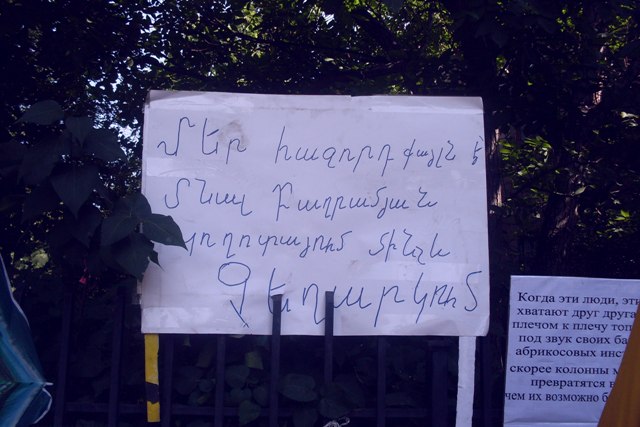 Մեր հաջորդ քայլն է
մնալ Բաղրամյան
պողոտայում մինչև
Չեղարկում
Когда эти люди, эти
хватают друг друга
плечом к плечу топ
под звук своих ба
абрикосовых инс
скорее колонны м
превратятся в
чем их возможно б